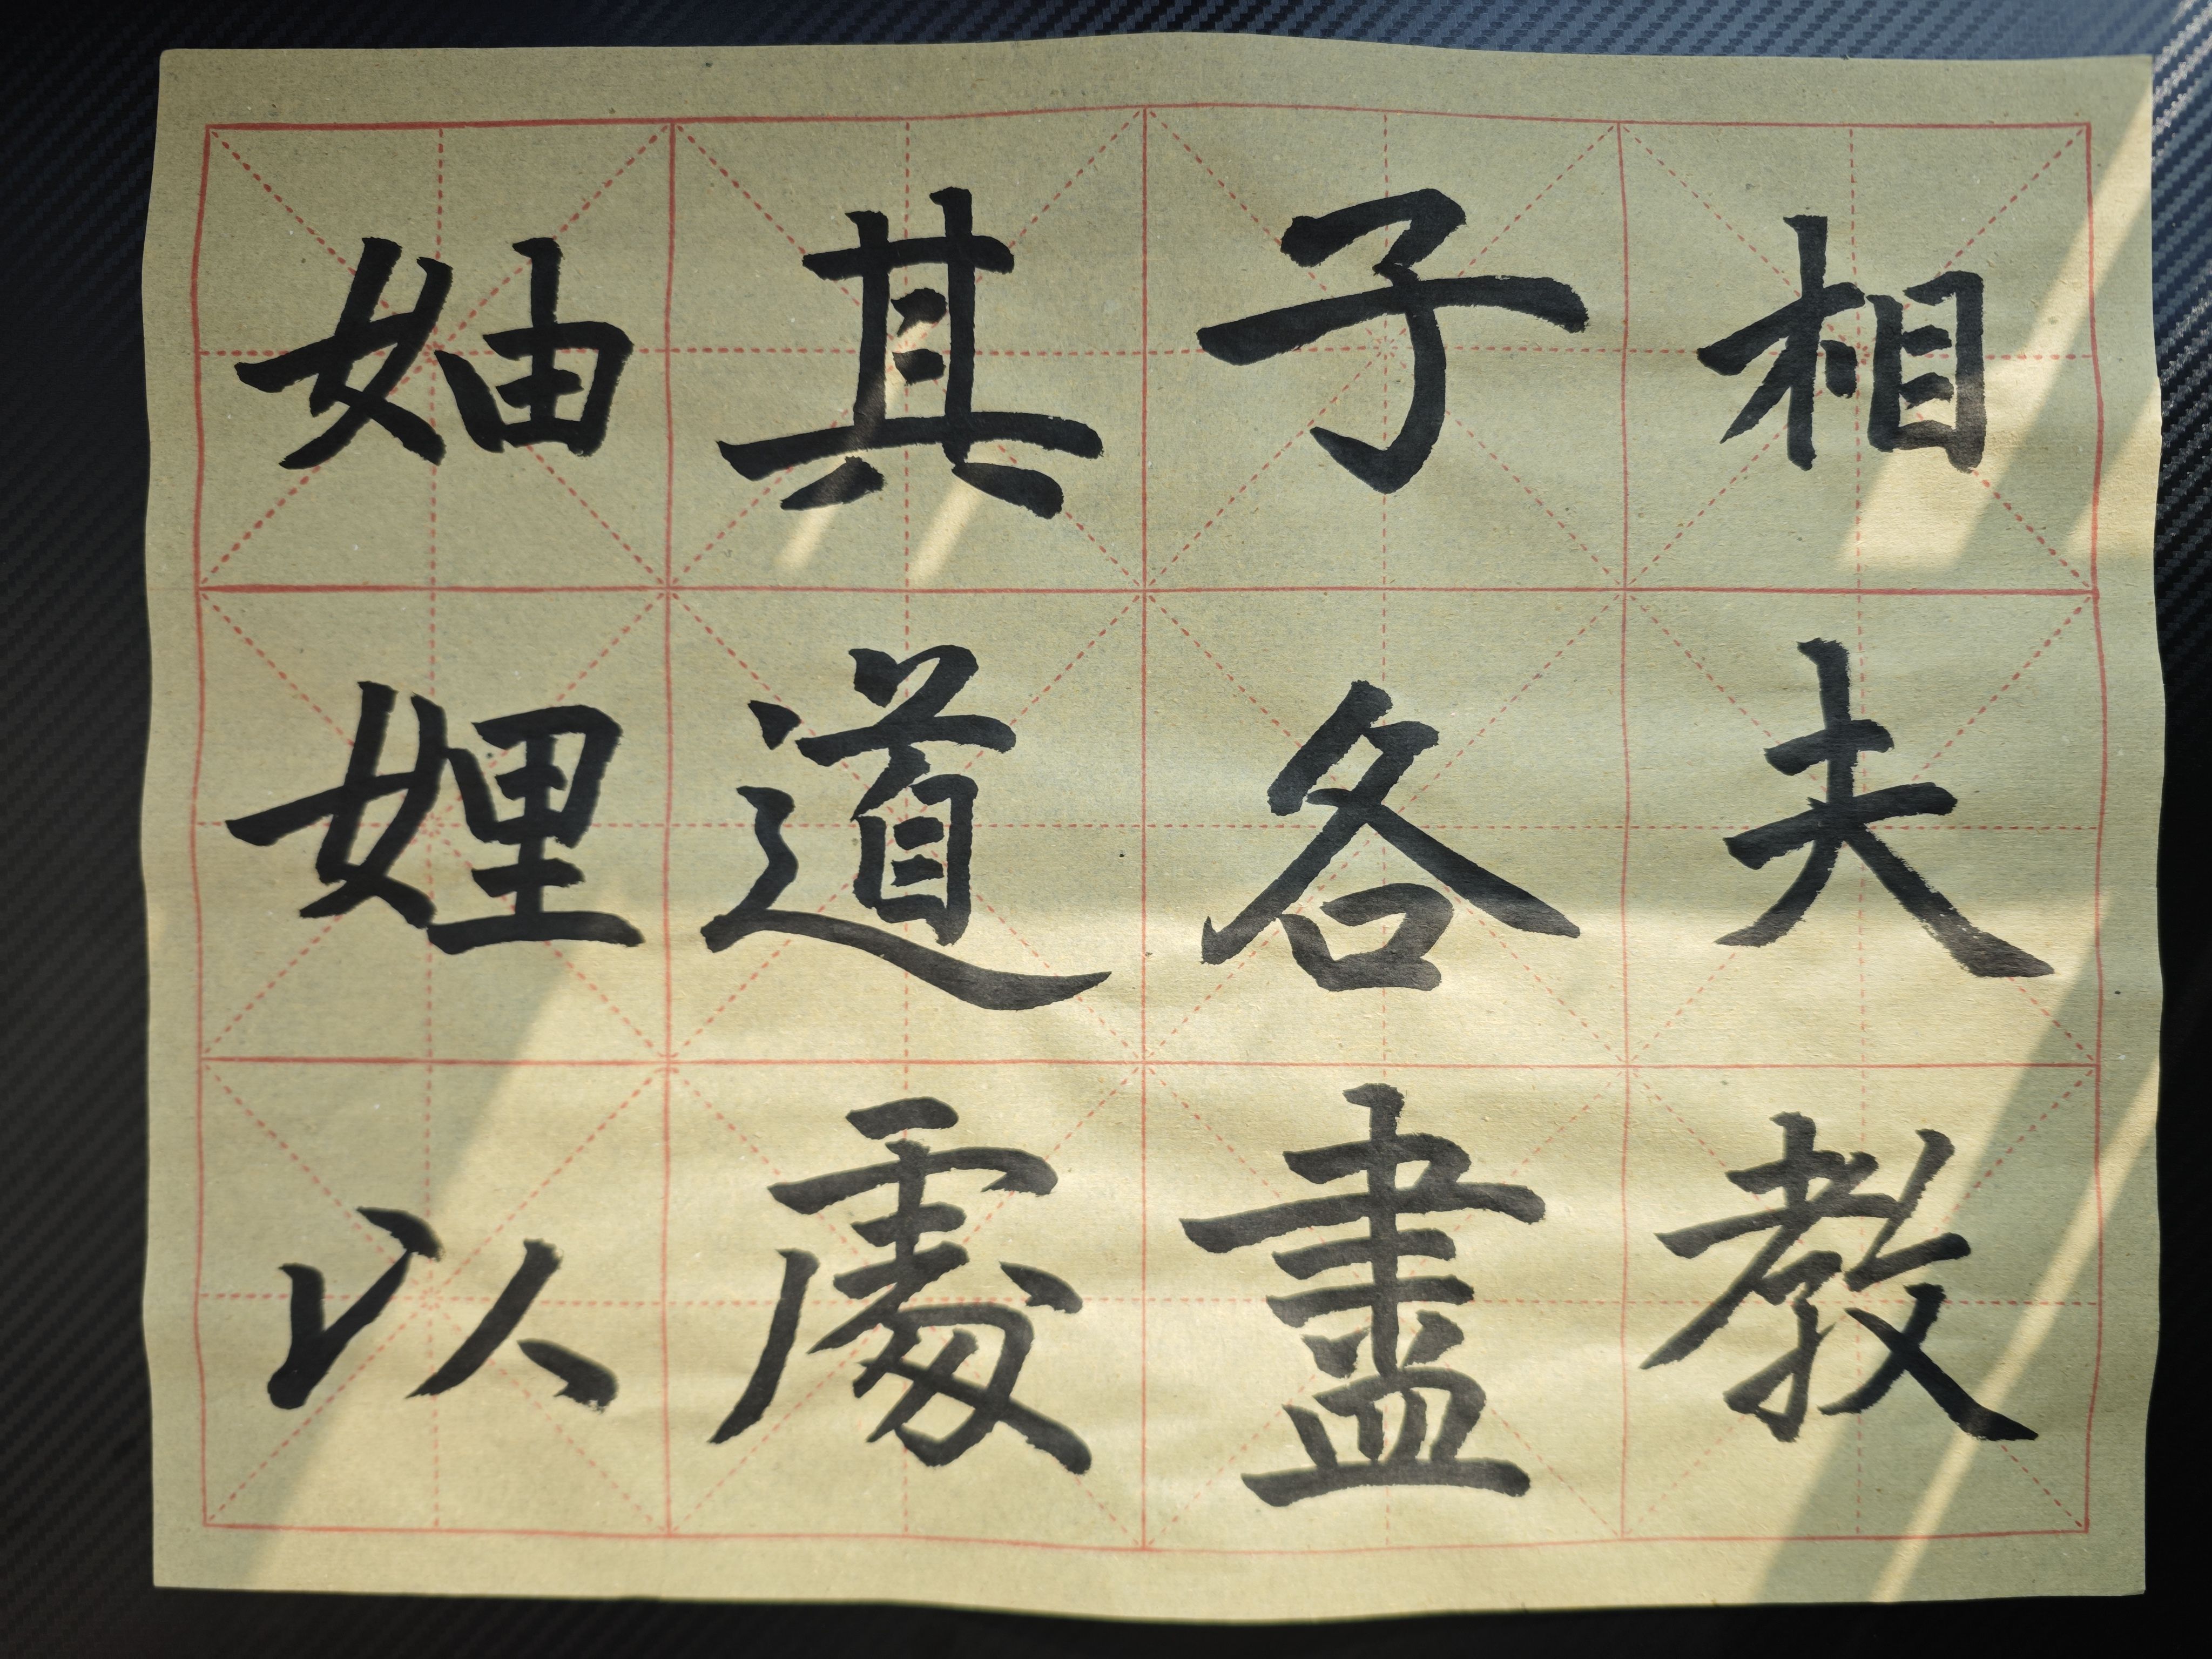 相夫教
子各盡
其道處
妯娌以